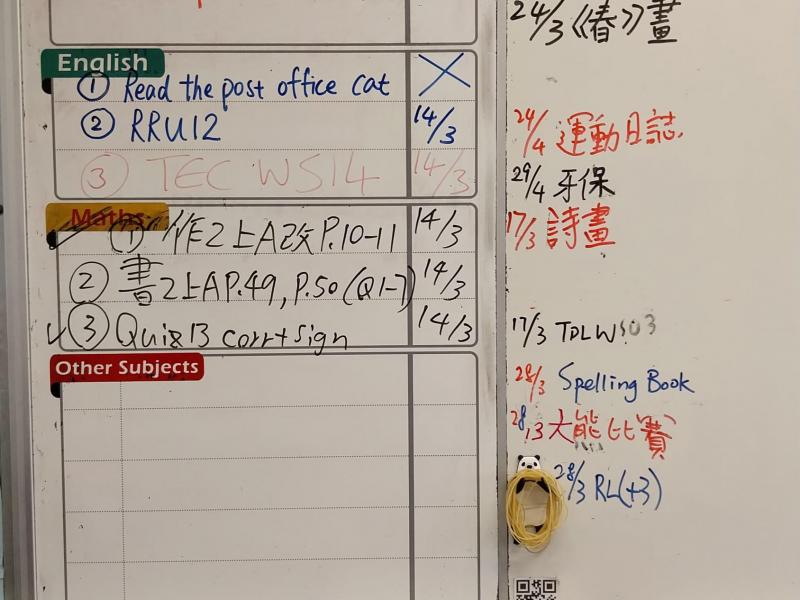 English
① Read the post office cat
② RRU12 14/3
③ TEC WS14 14/3
Maths
① 作2上A改P.10-11 14/3
② 書2上AP.49, P.50 (Q1-7) 14/3
③ Quiz13 corr+sign 14/3
Other Subjects
24/3 《春》畫
24/4 運動日誌
29/4 牙保
17/3 詩畫
17/3 TDLW
28/3 Spelling Book
28/3 大能比賽
28/3 RL(+3)